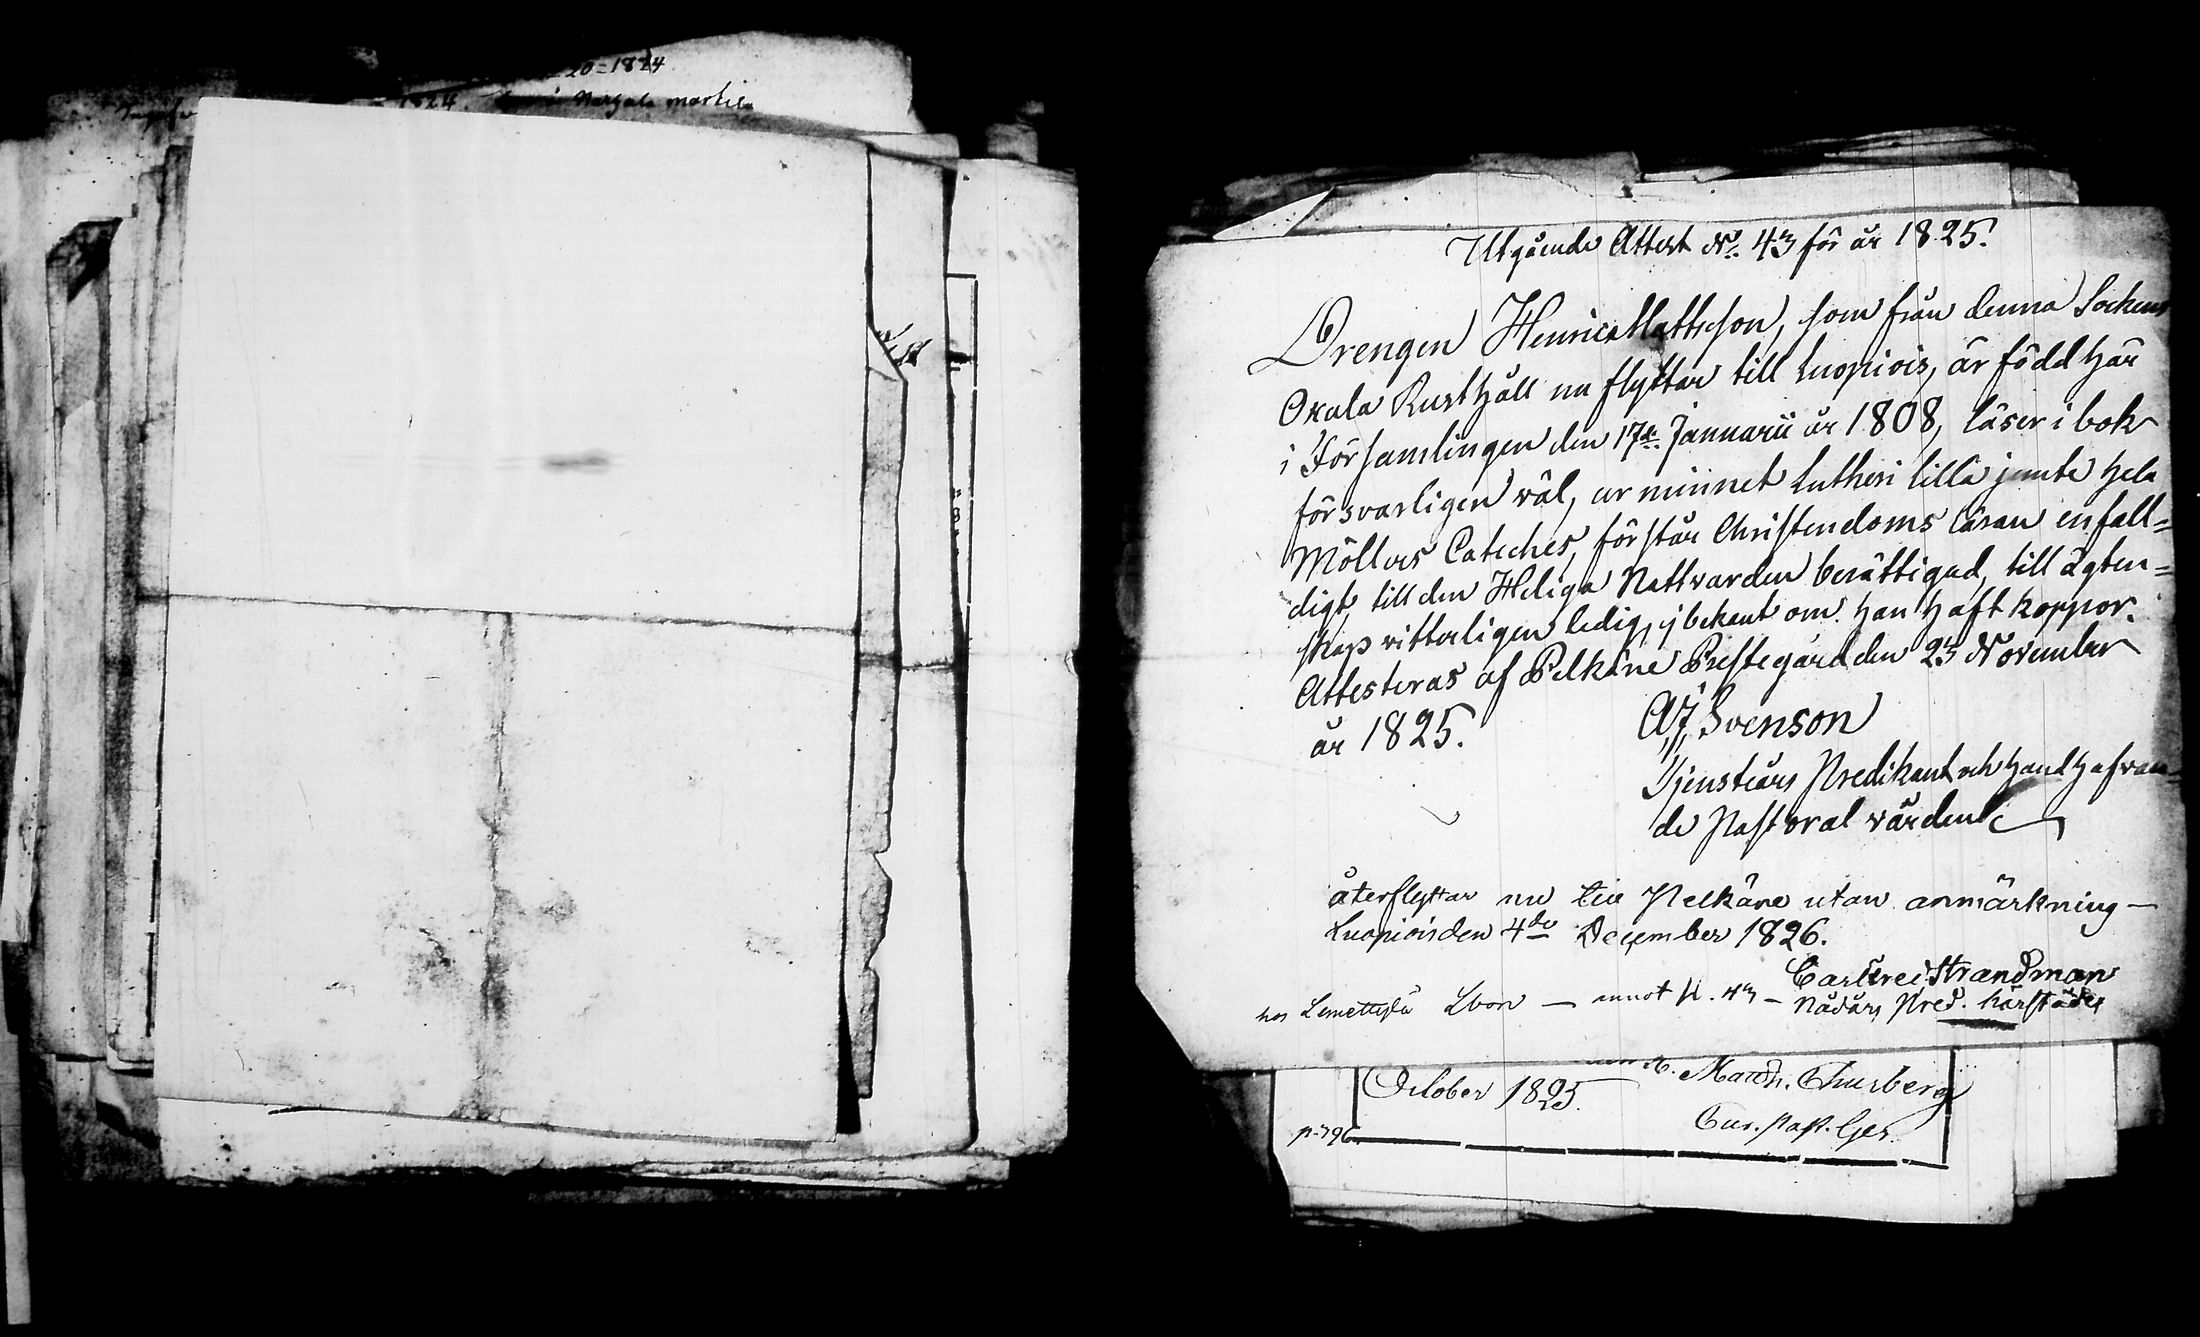 20=1824
1824. Nargala martila
Utgående Attest No. 43 för år 1825.
Drengen Henric Mattsson, som från denna Sockens
Oxala Rusthåll nu flyttar till Luopiois, är född här
i Församlingen den 17de Januarii år 1808, läser i bok
försvarligen wäl, ur minnet Lutheri lilla jemte hela
Möllers Cateches, förstår Christendoms läran enfall=
digt, till den Heliga Nattvarden berättigad, till ägten=
skap vitterligen ledig, ej bekant om han haft koppor.
Attesteras af Pelkäne Prestegård den 23 November
år 1825.
AJ Svenson
Tjensteårs Predikant och handhafvan=
de Pastoral vården
återflyttar nu till Pelkäne utan anmärkning —
Luopiois den 4de December 1826.
Carl Fred Strandman
hos Lemettylä — annot p. 43 — Nådårs Pred. härstädes
October 1825.
Math. Churberg
Cur. past. Ges.
p. 796.